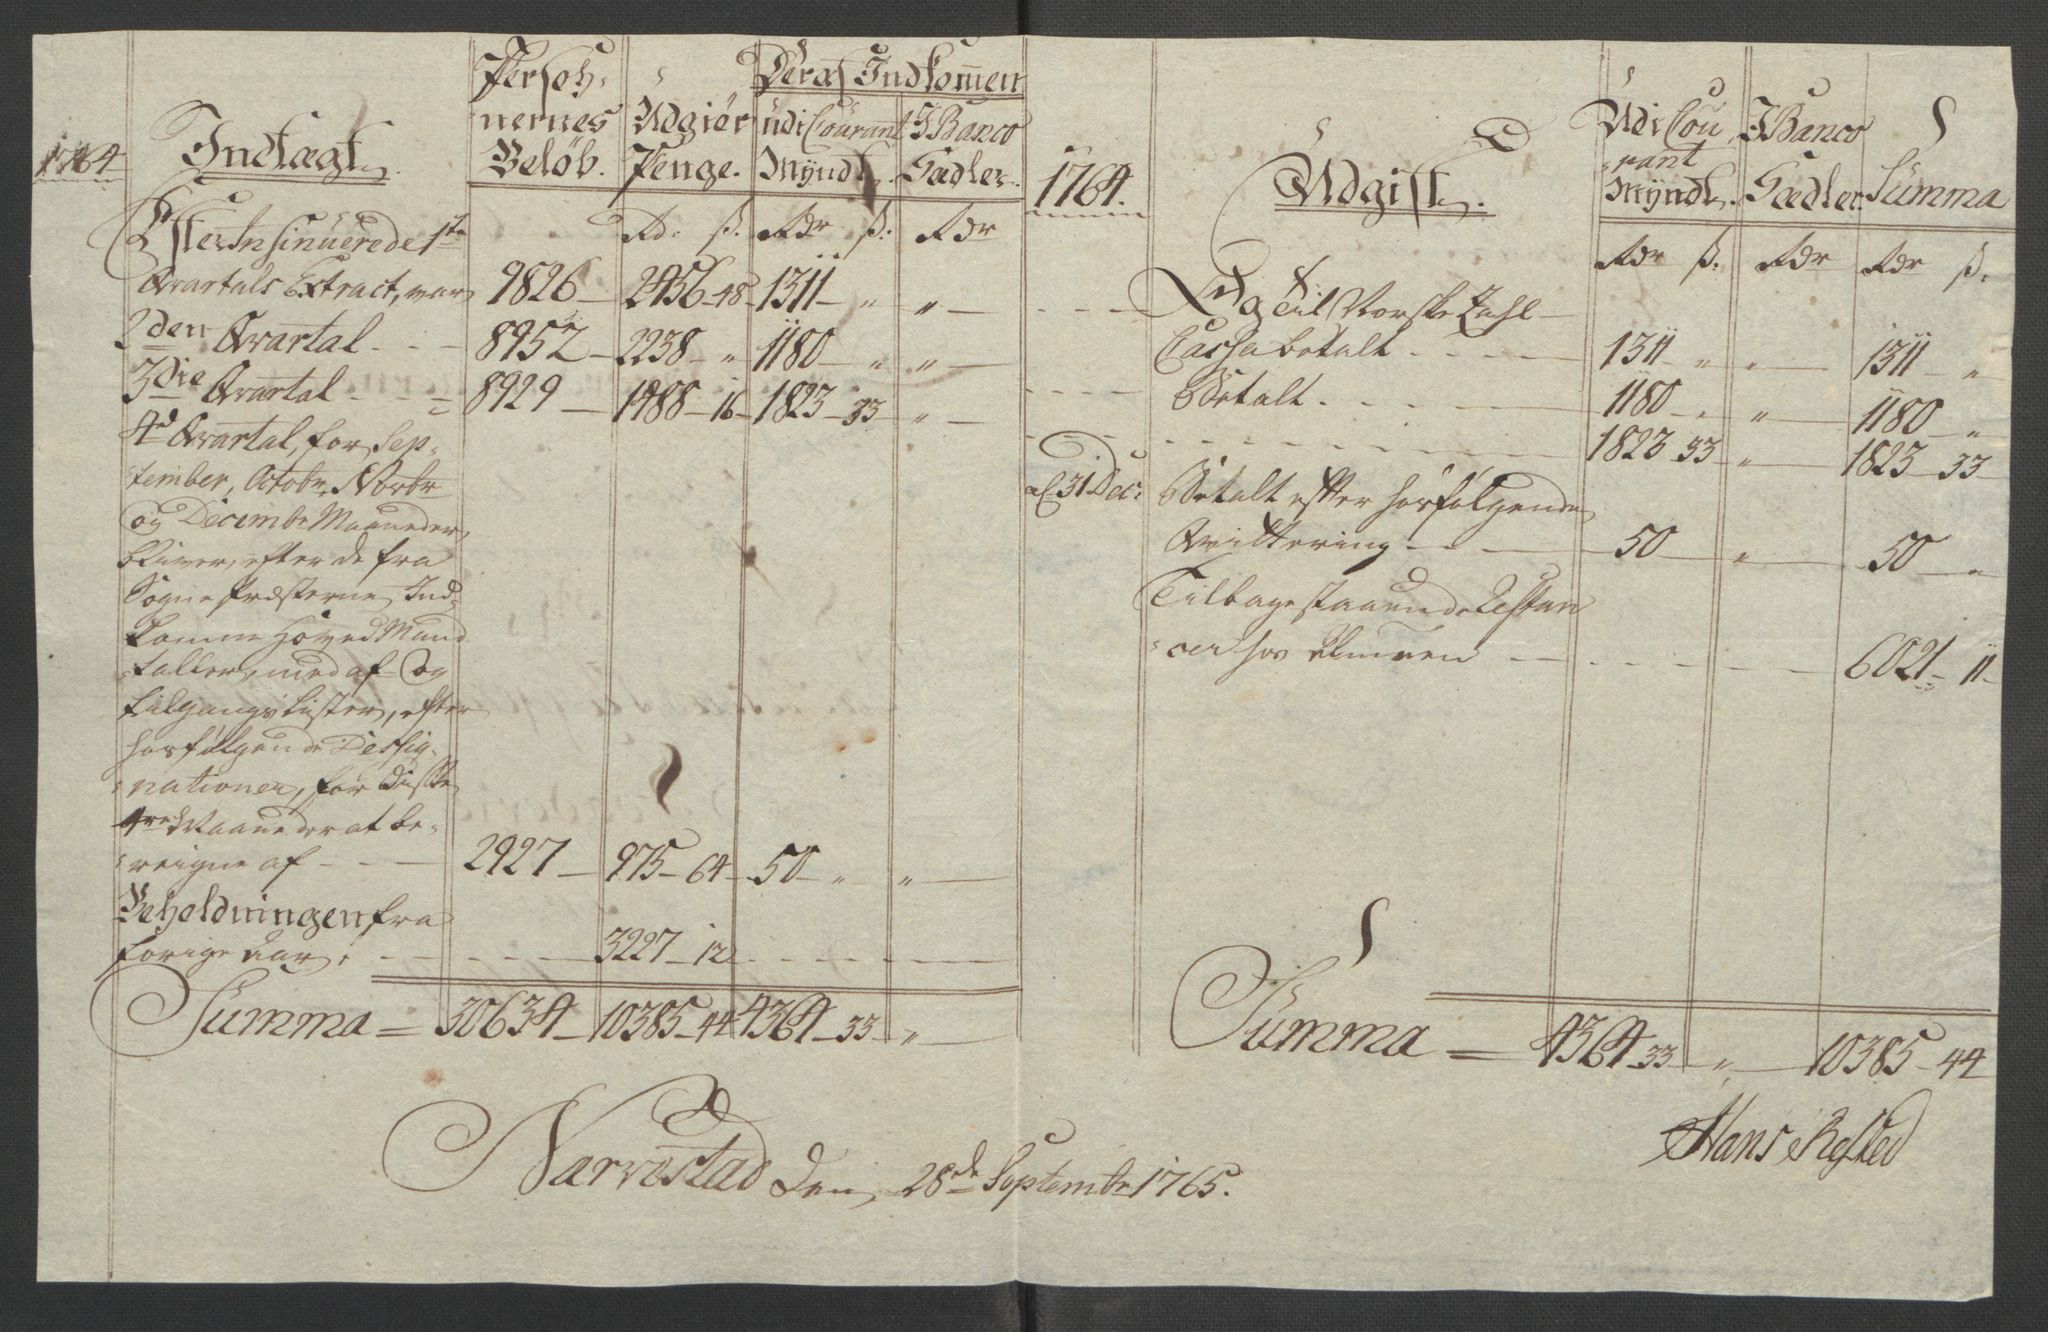 1764
Indtægt
Persoh-
nernes
Beløb.
Udgiør
Penge.
Deraf Indkom̄en
Udi Courant
Mÿndt
I Banco
Sædler.
Rd. ß. Rdr ß. Rdr
Efter Insinuerede 1ste
Qvartals Extract, var 9826 — 2456 - 48 - 1311 - " "
2den Qvartal - - - 8952 - 2238 - " 1180 - " "
3die Qvartal - - - 8929 - 1488 - 16 - 1823 - 33 "
4de Qvartal, for Sep-
tember, Octobr, Novbr
og Decembr Maaneder,
bliver, efter de fra
Sogne Præsterne Ind-
komne Hoved Mand
taller, med af- og
tilgangs Lister, efter
hosfølgende Dessig-
nationer, for disse
4re Maaneder at be-
reigne af - - - 2927 - 975 - 64 - 50 - " "
Beholdningen fra
forige Aar, - - - 3227 - 12
Summa = 30634 - 10385 - 44 - 4364 - 33 - "
1764.
Udgift.
Udi Cou
rant
Mÿndt.
I Banco
Sædler.
Summa
Rdr ß. Rdr Rdr ß.
Til Norske Zahl-
Cassa betalt - - - 1311 - " " 1311 - "
Betalt - - - 1180 - " " 1180 - "
1823 33 " 1823 - 33
31 Dec: Betalt efter hosfølgende
Qvittering - - - 50 " 50 - "
Tilbagestaaende Restan
cer hos Almuen - - - 6021 - 11
Summa = 4364 - 33 " 10385 - 44
Hans
Nærvestad den 28de Septembr 1765.